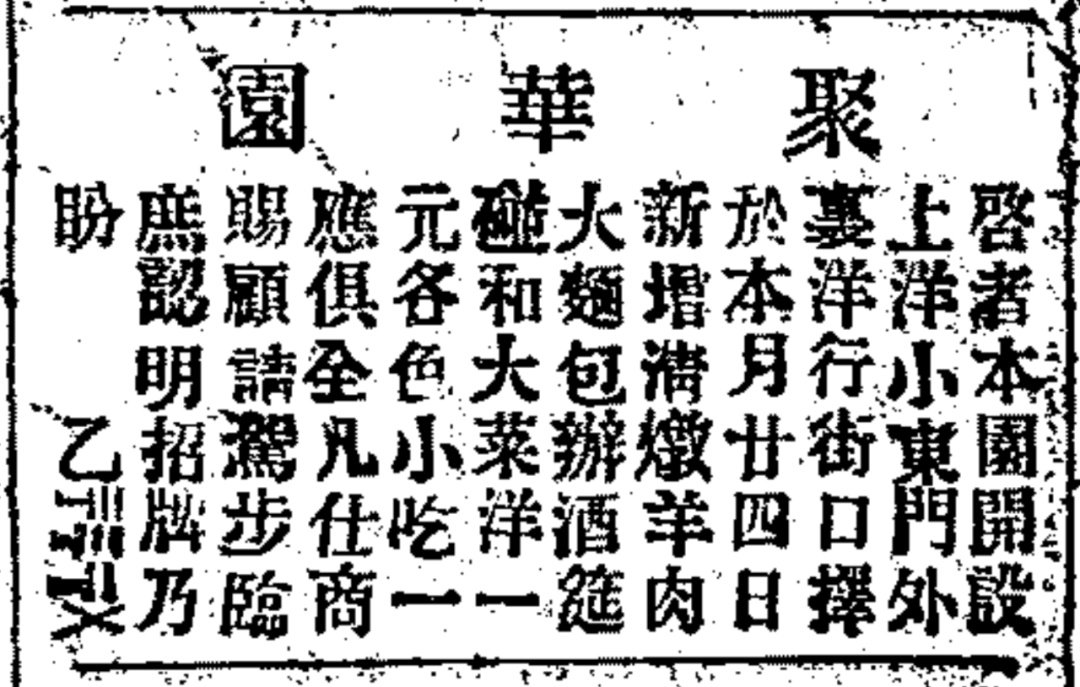 聚華園
啓者本園開設
上洋小東門外
裏洋行街口擇
於本月廿四日
新增淸燉羊肉
大麵包辦酒筵
碰和大菜洋一
元各色小吃一
應俱全凡仕商
賜顧請駕步臨
庶認明招牌乃
盼　　乙